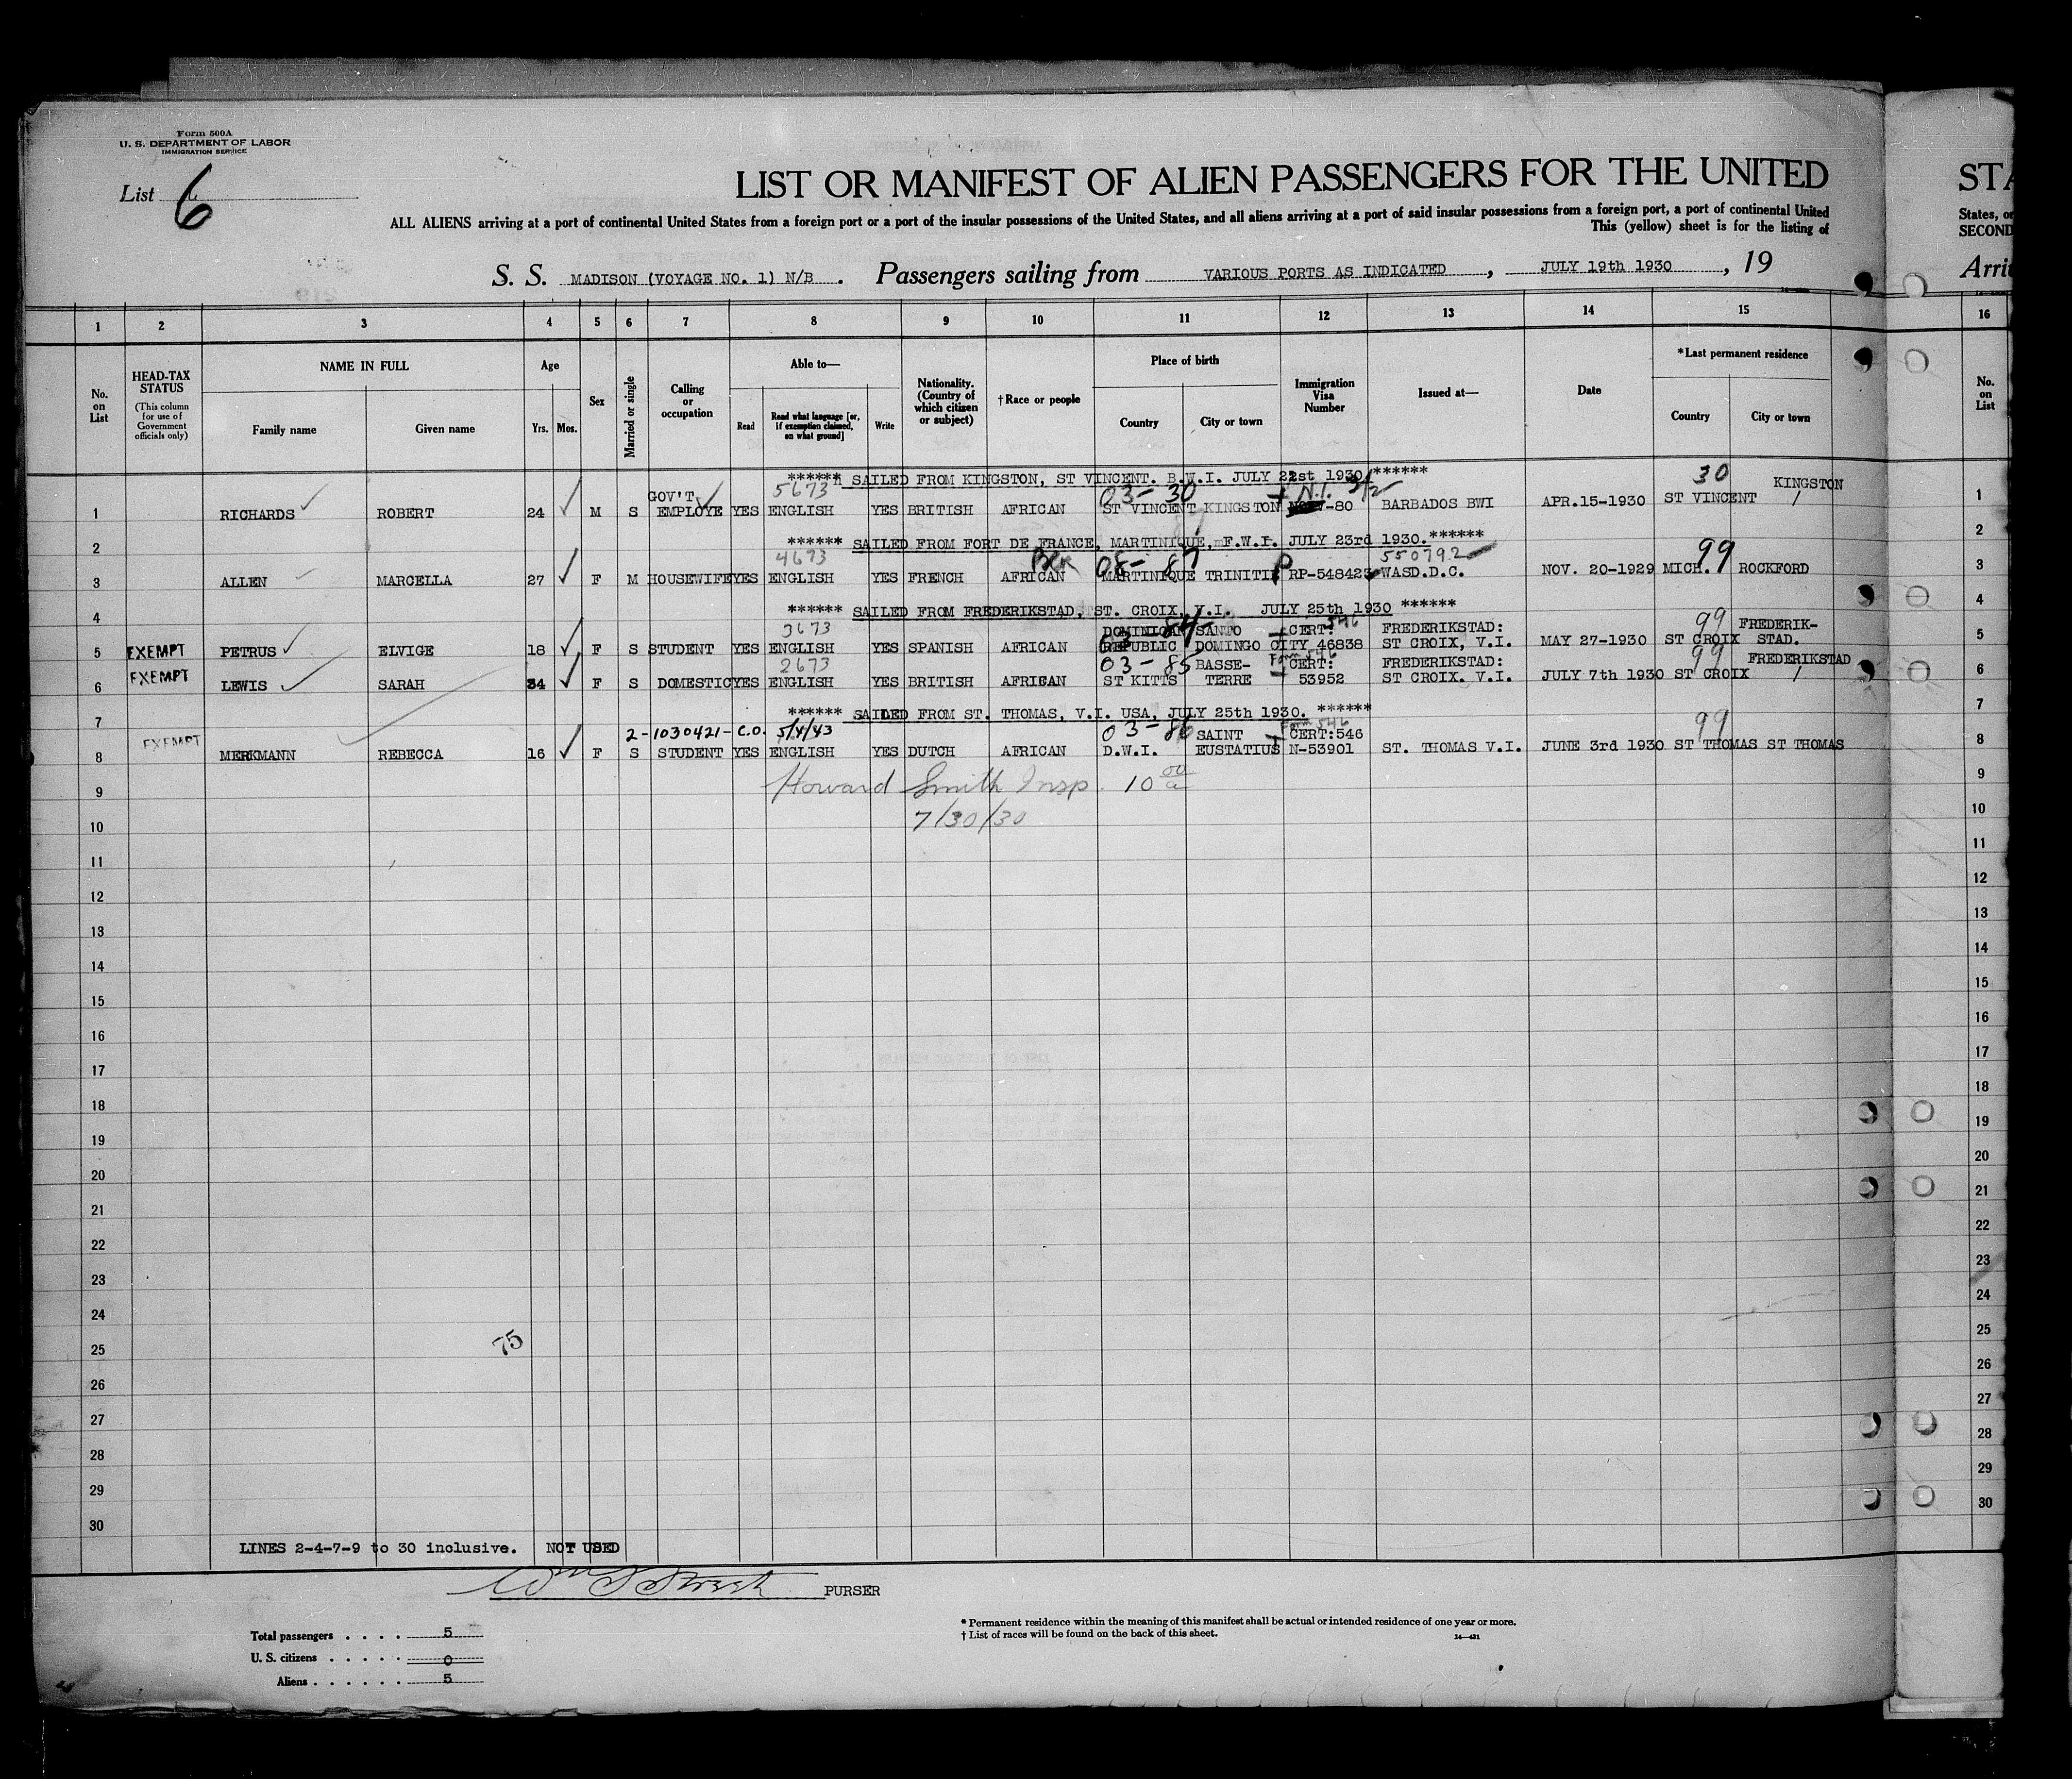 Form 500A
U. S. DEPARTMENT OF LABOR
IMMIGRATION SERVICE
List 6
LIST OR MANIFEST OF ALIEN PASSENGERS FOR THE UNITED
STA
ALL ALIENS arriving at a port of continental United States from a foreign port or a port of the insular possessions of the United States, and all aliens arriving at a port of said insular possessions from a foreign port, a port of continental United
States, or
This (yellow) sheet is for the listing of
SECOND
S. S. MADISON (VOYAGE NO. 1) N/B . Passengers sailing from VARIOUS PORTS AS INDICATED , JULY 19th 1930 , 19
Arri
1 2 3 4 5 6 7 8 9 10 11 12 13 14 15 16
No. on List
HEAD-TAX STATUS
(This column for use of Government officials only)
NAME IN FULL
Family name Given name
Age
Yrs. Mos.
Sex
Married or single
Calling or occupation
Able to—
Read
Read what language [or, if exemption claimed, on what ground]
Write
Nationality. (Country of which citizen or subject)
† Race or people
Place of birth
Country City or town
Immigration Visa Number
Issued at—
Date
* Last permanent residence
Country City or town
No. on List
****** SAILED FROM KINGSTON, ST VINCENT. B.W.I. JULY 21st 1930 ******
5673 03-30 N.I. 30
1 RICHARDS ROBERT 24 M S GOV'T EMPLOYE YES ENGLISH YES BRITISH AFRICAN ST VINCENT KINGSTON -80 BARBADOS BWI APR.15-1930 ST VINCENT KINGSTON 1
2 ****** SAILED FROM FORT DE FRANCE, MARTINIQUE, F.W.I. JULY 23rd 1930.****** 2
4673 08-87 P 550792 99
3 ALLEN MARCELLA 27 F M HOUSEWIFE YES ENGLISH YES FRENCH AFRICAN MARTINIQUE TRINITIE RP-548423 WASD.D.C. NOV. 20-1929 MICH. ROCKFORD 3
4 ****** SAILED FROM FREDERIKSTAD, ST. CROIX, V.I. JULY 25th 1930 ****** 4
3673 03 84 546 99
5 EXEMPT PETRUS ELVIGE 18 F S STUDENT YES ENGLISH YES SPANISH AFRICAN DOMINICAN REPUBLIC SANTO DOMINGO CITY CERT: 46838 FREDERIKSTAD: ST CROIX, V.I. MAY 27-1930 ST CROIX FREDERIK-STAD. 5
2673 03-85 Form 546 99
6 EXEMPT LEWIS SARAH 34 F S DOMESTIC YES ENGLISH YES BRITISH AFRICAN ST KITTS BASSE-TERRE CERT: 53952 FREDERIKSTAD: ST CROIX. V.I. JULY 7th 1930 ST CROIX FREDERIKSTAD 6
7 ****** SAILED FROM ST. THOMAS, V.I. USA, JULY 25th 1930. ****** 7
2-1030421-C.O. 5/4/43 03-86 Form 546 99
8 EXEMPT MERKMANN REBECCA 16 F S STUDENT YES ENGLISH YES DUTCH AFRICAN D.W.I. SAINT EUSTATIUS CERT:546 N-53901 ST. THOMAS V.I. JUNE 3rd 1930 ST THOMAS ST THOMAS 8
9 Howard Smith Insp. 10 00 a 9
10 7/30/30 10
11 11
12 12
13 13
14 14
15 15
16 16
17 17
18 18
19 19
20 20
21 21
22 22
23 23
24 24
75
25 25
26 26
27 27
28 28
29 29
30 30
LINES 2-4-7-9 to 30 inclusive. NOT USED
PURSER
Total passengers . . . . 5
U. S. citizens . . . . . 0
Aliens . . . . . . 5
* Permanent residence within the meaning of this manifest shall be actual or intended residence of one year or more.
† List of races will be found on the back of this sheet.